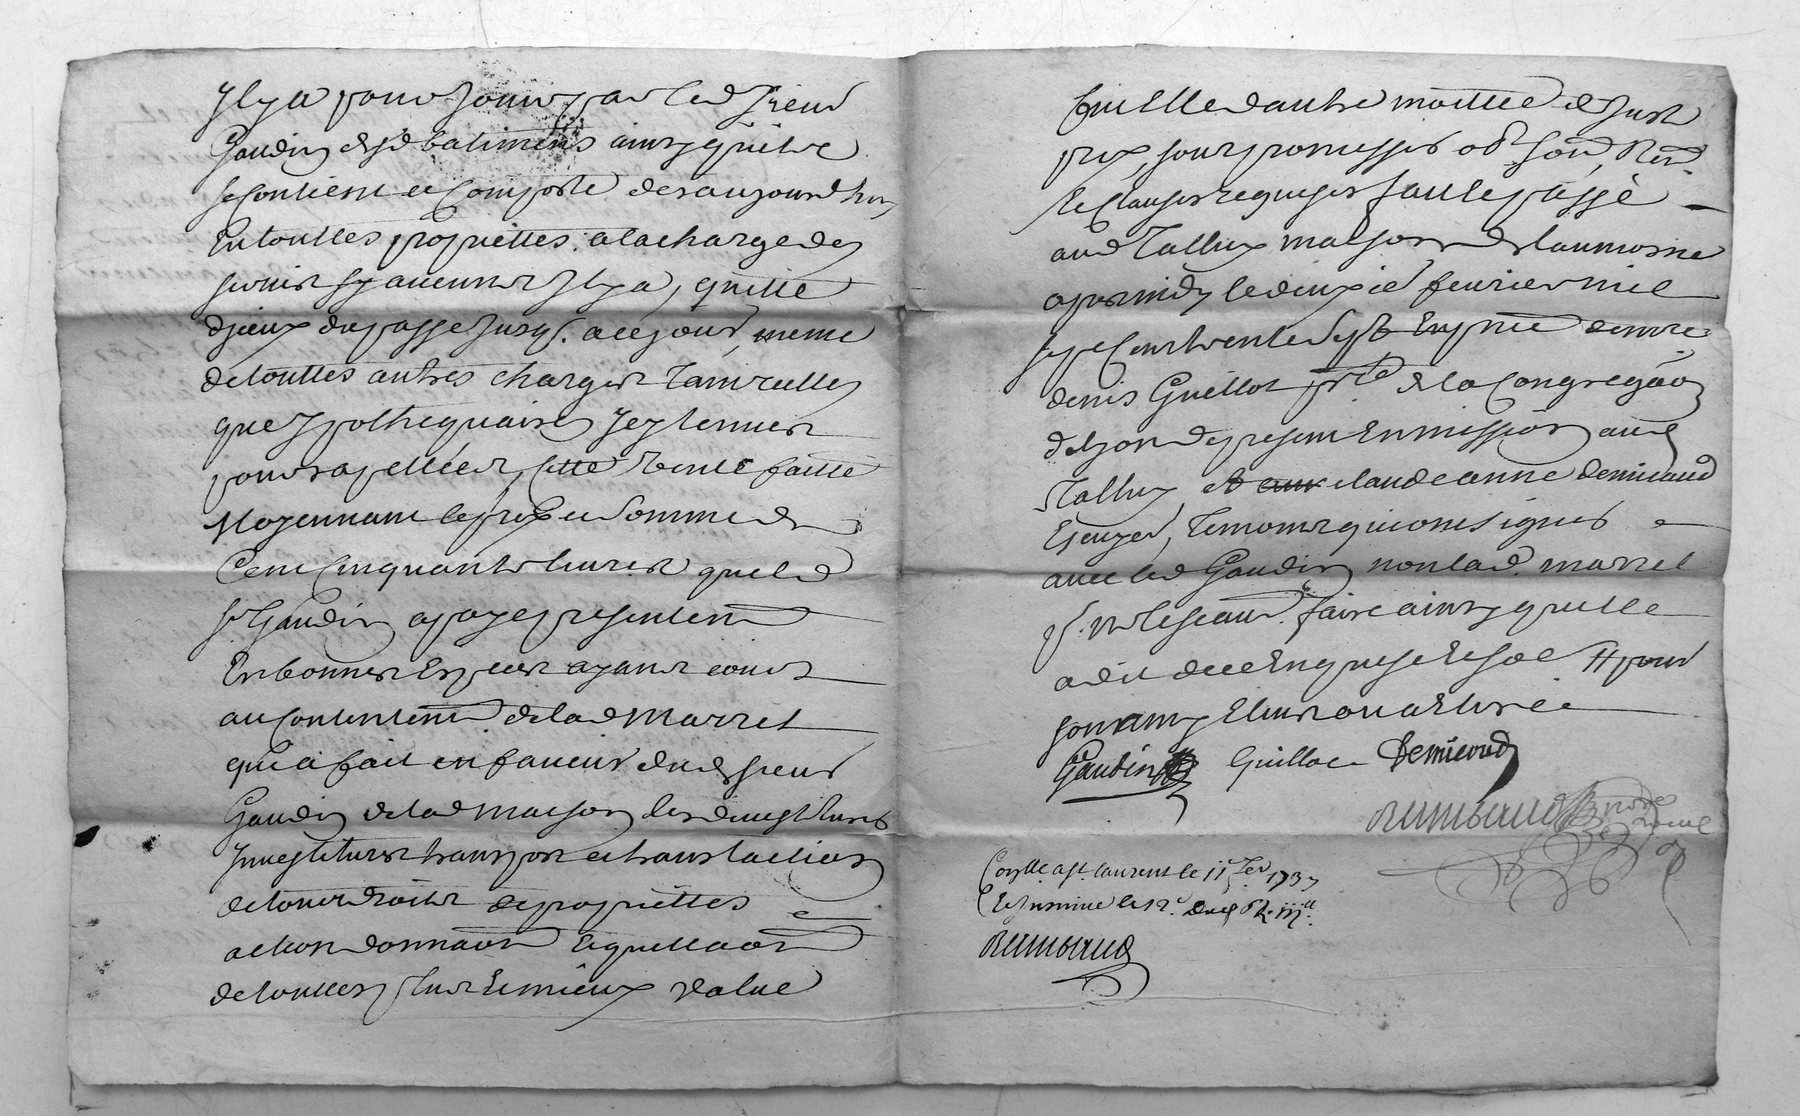 Il y a pour jouir par led Sieur
Gaudin desd batimens ainsy qu'il se
se Contient et Comporte des aujourdhuy
En touttes propriettés a la charge des
servis sy aucuns Il y a, quitte
d'iceux du passé Jusq. a ce jour, meme
de touttes autres charges tant reelles
que Ipothequaires Icy tenues
pour rapellées, Cette vente faitte
Moyennant le prix et Somme de
Cent Cinquante livres que led
Sr Gaudin a payé presentemt
En bonnes Especes ayant cours
au Contentemt de lad Marret
qui a fait en faveur dud Sieur
Gaudin de lad Maison les devestitures
Investitures transport et translation
de tous droits de proprietté
action donnaon
de touttes plus Et mieux value
Qu'Elle d'autre moitié de Just
prix, sous promesses obon Soumon Renon
Et Clauses requises fait et passé
aud Talluy maison de l'aumosne
apres midy le deuxie fevrier mil
sept Cent trente Sept En prnce de mre
denis Guillot prte de la Congregaon
de lyon de present En mission aud
Talluy, et claude anne Demiaud
Ecuyer, temoins qui ont signés
avec led Gaudin non lad. marret
p. ne le scavoir faire ainsy qu'elle
a dit de ce Enquise Et sol pour

Gaudin Guillot Demieaud
Reimbaud
Conllé a St. laurent le 11e fer 1737

Reimbaud